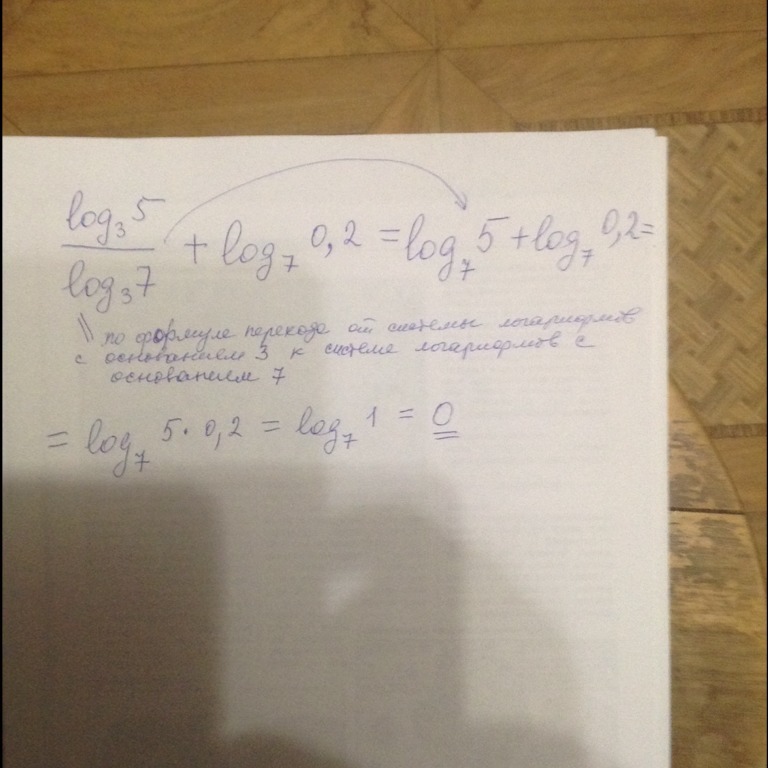 log₃5 / log₃7 + log₇ 0,2 = log₇ 5 + log₇ 0,2 =
по формуле перехода от системы логарифмов
с основанием 3 к системе логарифмов с
основанием 7
= log₇ 5·0,2 = log₇ 1 = 0